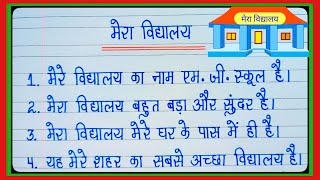 मेरा विद्यालय
मेरा विद्यालय
1. मेरे विद्यालय का नाम एम. जी. स्कूल है।
2. मेरा विद्यालय बहुत बड़ा और सुंदर है।
3. मेरा विद्यालय मेरे घर के पास में ही है।
4. यह मेरे शहर का सबसे अच्छा विद्यालय है।